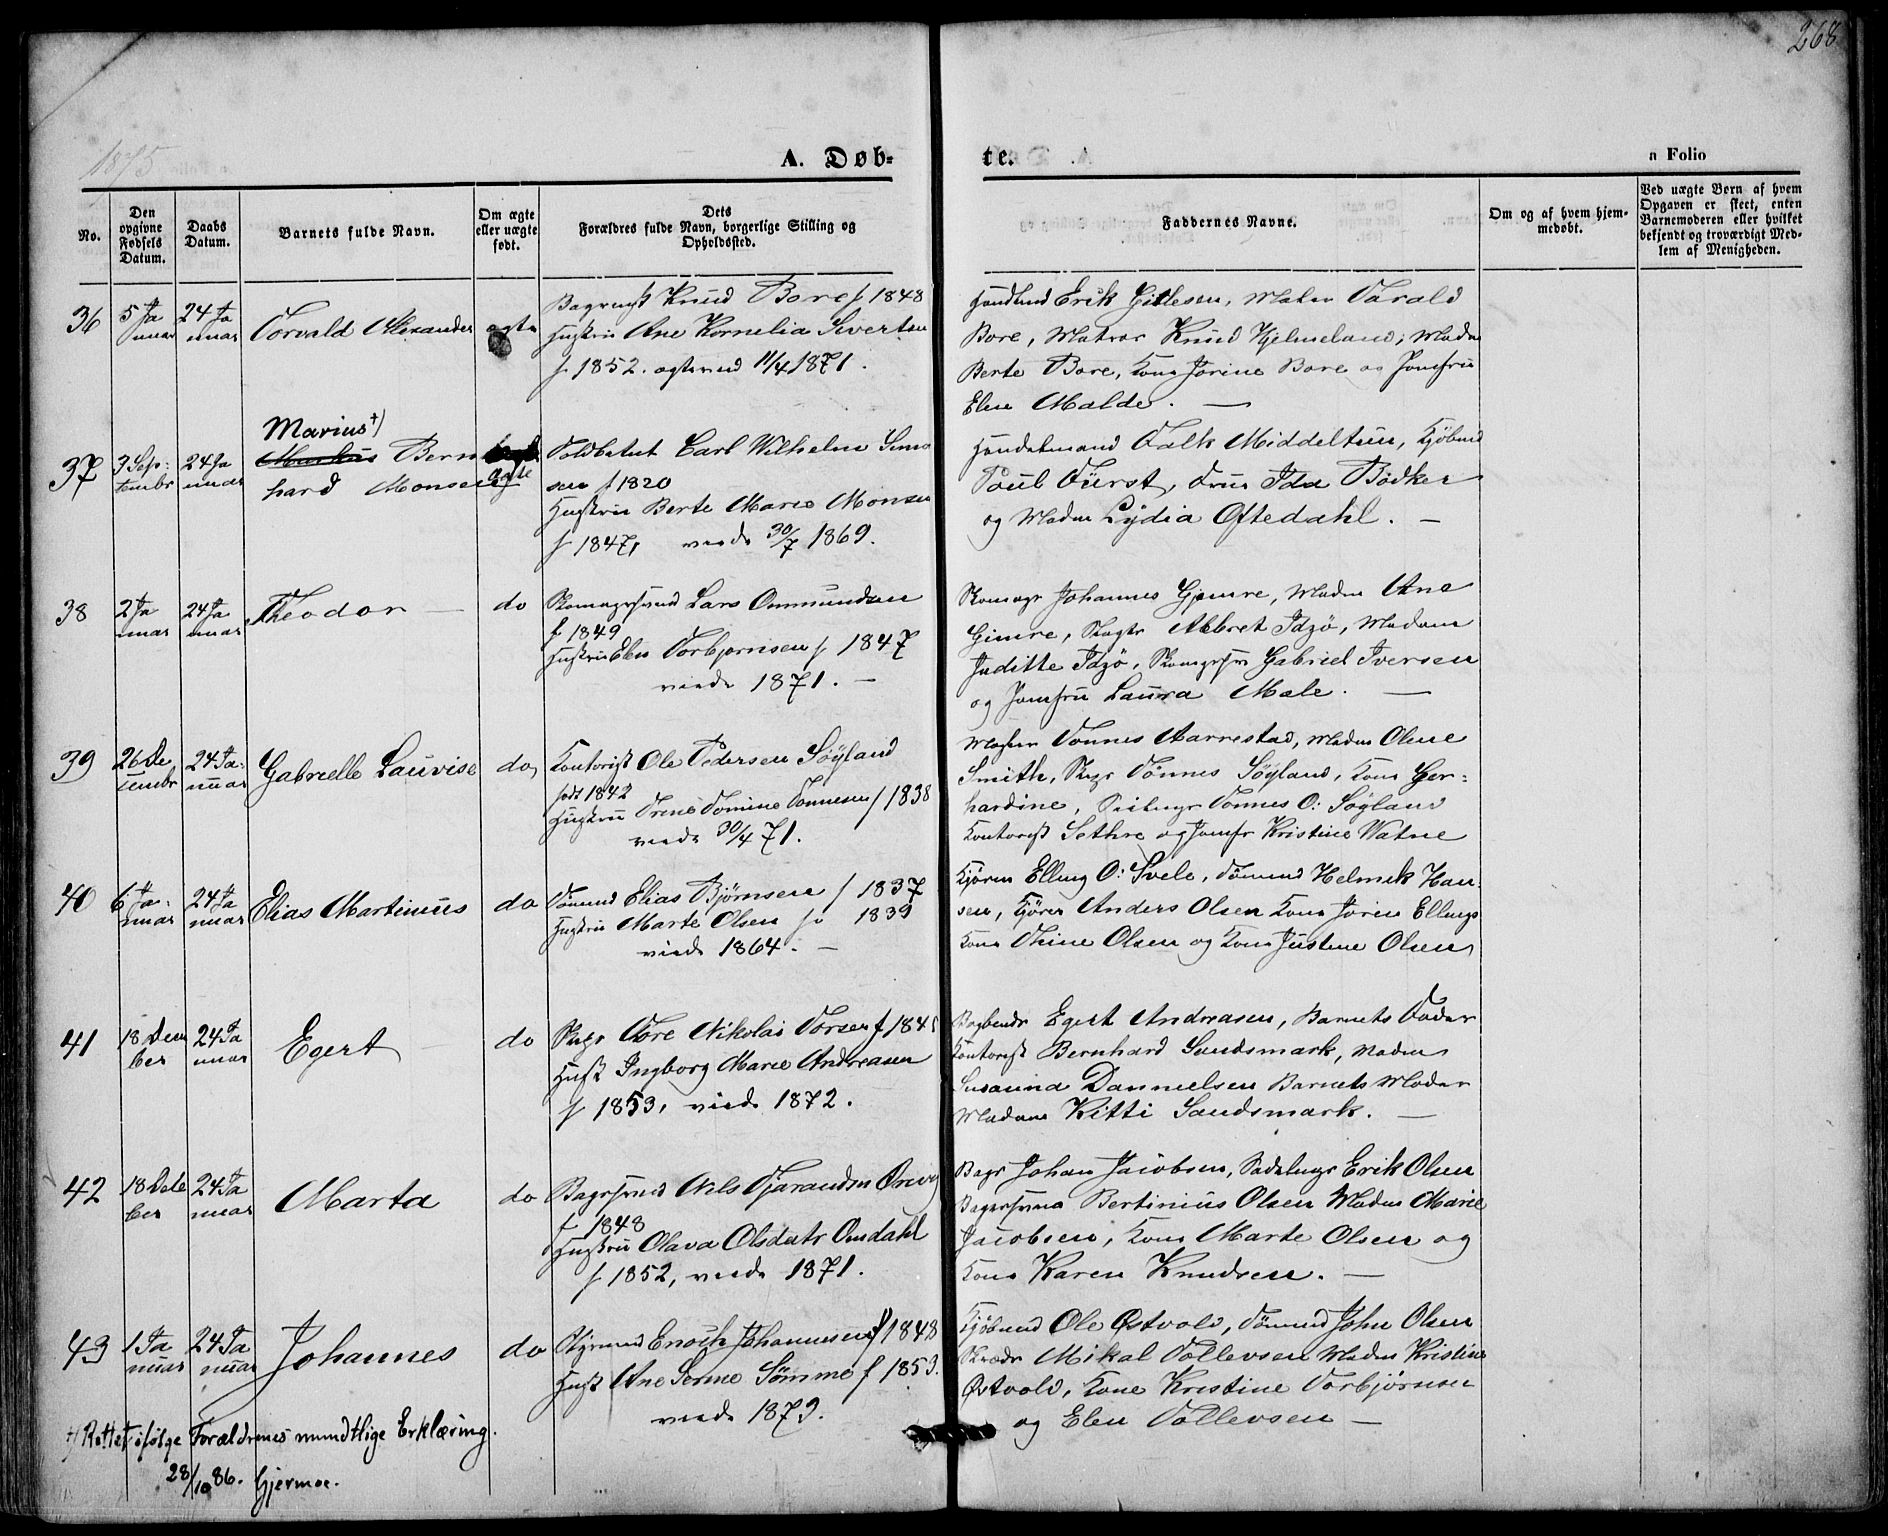 268
1875
A. Døb-
te.
n Folio
No.
Den opgivne Fødsels Datum.
Daabs Datum.
Barnets fulde Navn.
Om ægte eller uægte født.
Dets
Forældres fulde Navn, borgerlige Stilling og
Opholdssted.
Faddernes Navne.
Om og af hvem hjem-
medøbt.
Ved uægte Børn af hvem
Opgaven er skeet, enten
Barnemoderen eller hvilket
bekjendt og troværdigt Med-
lem af Menigheden.
36
5 Ja
nuar
24 Ja
nuar
Torvald Alexander
ægte
Knud Bore f 1848
Hustru Ane Kornelia Sivertsen
f 1852. ægteviud 11/4 1871.
Erik Gitlesen, Maler Tarald
Bore, Matros Knud Hjelmeland, Madm
Berte Bore, Kone Jorine Bore og Jomfru
Elen Malde. —
37
3 Sep-
tembr
24 Ja
nuar
Marius †)
Markus Bern
hard Monsen
ægte
Toldbetjt Carl Wilhelm Simo
sen f 1820
Hustru Berte Marie Monsen
f 1847, viede 30/7 1869.
Handelsmand Falk Middeltun, Kjøbmd
Poul Fürst, Frue Ida Bødker
og Madm Lydia Oftedahl. —
38
2 Ja
nuar
24 Ja
nuar
Theodor —
do
Skomagersvend Lars Ommundsen
f 1849
Hustru Elen Torbjørnsen f 1847
viede 1871. —
Skomagr Johannes Gjemre, Madm Ane
Gimre, Albret Idzö, Madam
Juditte Idzö, Gabriel Iversen
og Jomfru Laura Male. —
39
26 De
cembr
24 Ja-
nuar
Gabrielle Lauvise
do
Kontorist Ole Pedersen Söyland
født 1842
Hustru Trine Tomine Tønnesen f 1838
viede 30/4 71.
Tønnes Aarrestad, Madm Oline
Smith, Tönnes Söyland, Kone Ger-
hardine, Tønnes O: Söyland
Kontorist Sethre og Jomfr Kristine Watne
40
6 Ja-
nuar
24 Ja
nuar
Elias Martinus
do
Tømmd Elias Bjørnsen f 1837
Hustru Marte Olsen f 1839
viede 1864. —
Kjører Elling O: Svele, Tømmd Helmik Han
sen, Kjører Anders Olsen Kone Jorin Ellings
Kone Thine Olsen og Kone Justine Olsen
41
18 Dcm
ber
24 Ja
nuar
Egert
do
Tore Nikolai Torsen f 184
Hust Ingborg Marie Andreasen
f 1853, viede 1872.
Bogbindr Egert Andreasen, Barnets Fader
Kontorist Bernhard Sandsmark, Madm
Susanna Dannielsen Barnets Moder
Madam Kitti Sandsmark. —
42
18 Dcbe
ber
24 Ja
nuar
Marta
do
Bagersvend Nils Tjerandsen
f 1848
Hustru Olava Olsdatr Omdahl
f 1852, viede 1871.
Bagr Johan Jacobsen, Sadelmgr Erik Olsen
Bagersvend Bertinius Olsen Madm Marie
Jacobsen, Kone Marte Olsen og
Kone Karen Knudsen. —
43
1 Ja
nuar
24 Ja
nuar
Johannes
do
Styrmd Enoch Johannesen f 1848
Hust Ane Serine Sømme f 1853.
viede 1873.
Kjøbmd Ole Østvold, Tømmd John Olsen
Skrædr Mikal Tollevsen Madm Kristine
Østvold, Kone Kristine Torbjørnsen
og Elen Tollevsen —
†) Rettet ifølge Forældrenes mundtlige Erklæring.
28/10 86. Gjermoe.